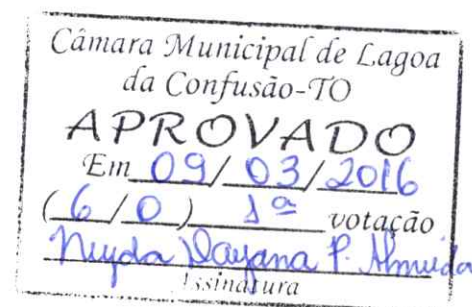 Câmara Municipal de Lagoa
da Confusão-TO
APROVADO
Em 09/ 03/ 2016
( 6 / 0 ) 1ª votação
Dayana P. Almeida
Assinatura